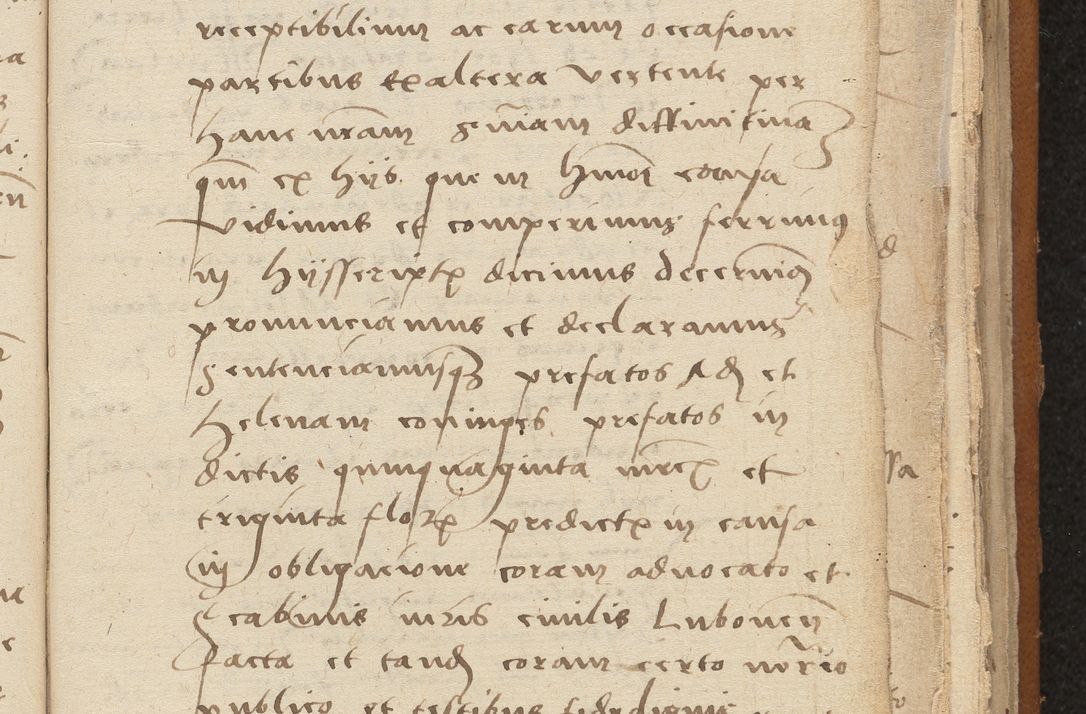 receptibilium ac earum occasione
partibus ex altera vertente per
hanc nram sniam diffinitivam
qm ex hijs que in hmoi causa
vidimus et comperimus ferimus
in hijs script dicimus decernim
pronunciamus et declaramus
sentenciamusq prefatos Ad et
Helenam coniuges prefatos in
dictis quinquaginta mrc et
triginta flor predict in causa
in obligacione coram advocato et
scabinis iuris civilis Lubovien
facta et tand coram certo notrio
publico et testibus fidedignis